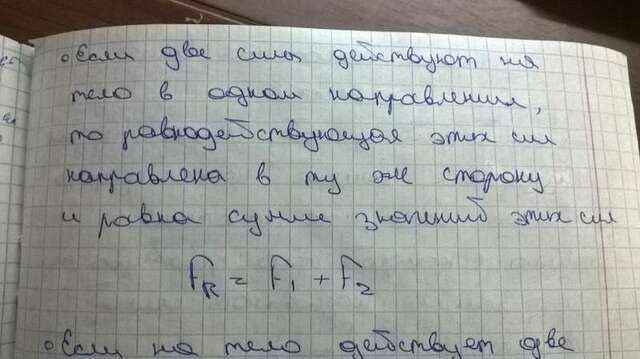 Если две силы действуют на
тело в одном направлении,
то равнодействующая этих сил
направлена в ту же сторону
и равна сумме значений этих сил
F_R = F_1 + F_2
Если на тело действует две